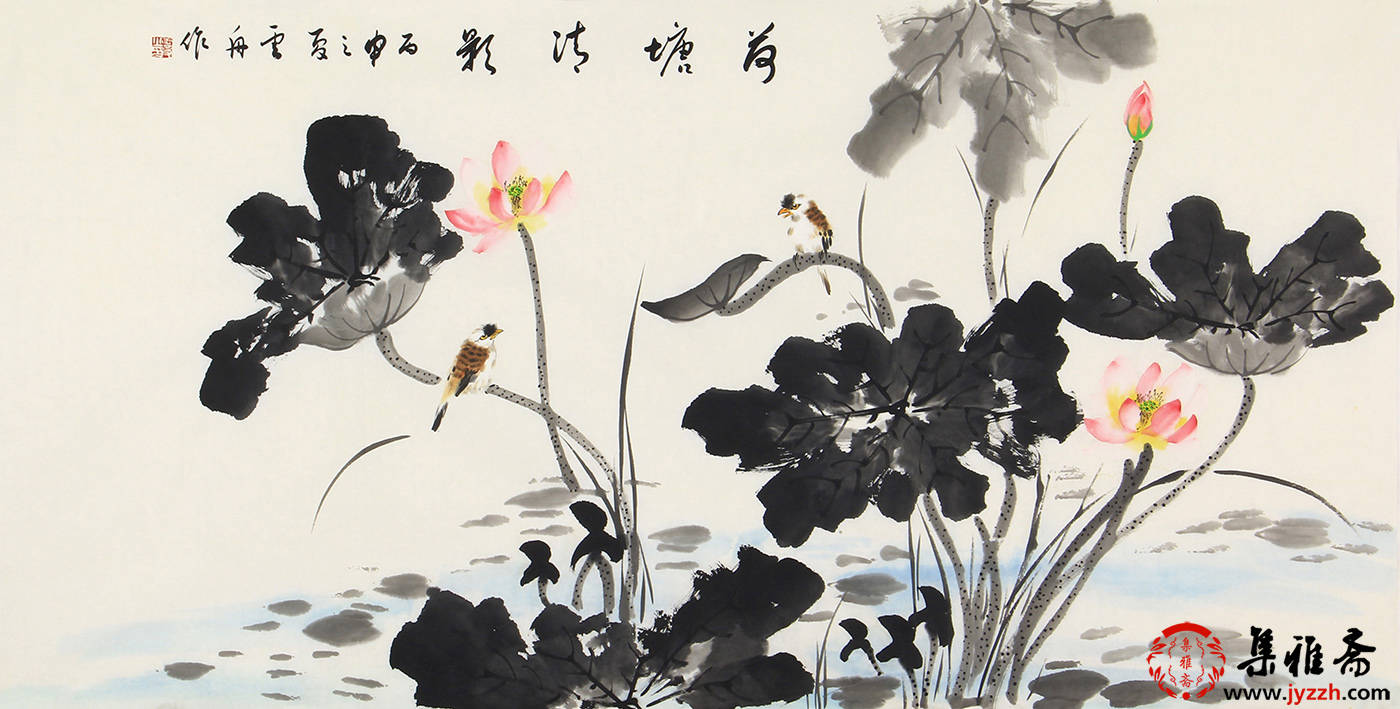 荷塘清影
丙申之夏雲舟作
集雅斋
集雅斋
www.jyzzh.com